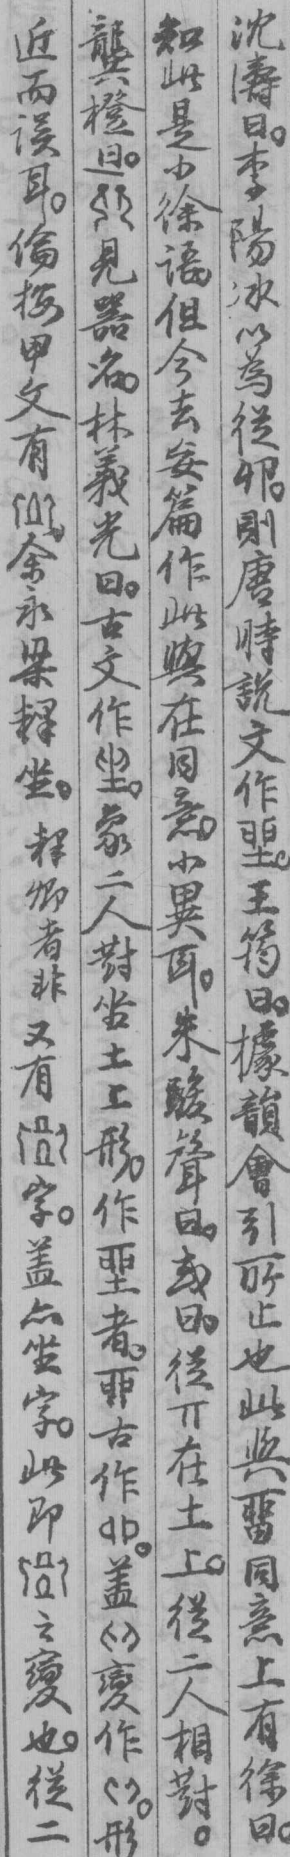 沈濤曰。李陽冰以為從丣。則唐時說文作𡋲。王筠曰。據韻會引所止也此與畱同意上有徐曰。
知此是小徐語但今去妄篇作此與在同意。小異耳。朱駿聲曰。或曰。從丌在土上。從二人相對。
龔橙曰。見器名。林義光曰。古文作坐。象二人對坐土上形。作𡋲者。丣古作卯。蓋變作。形
近而誤耳。倫按甲文有余永梁釋坐。釋卿者非又有字。蓋亦坐字。此即之變也。從二